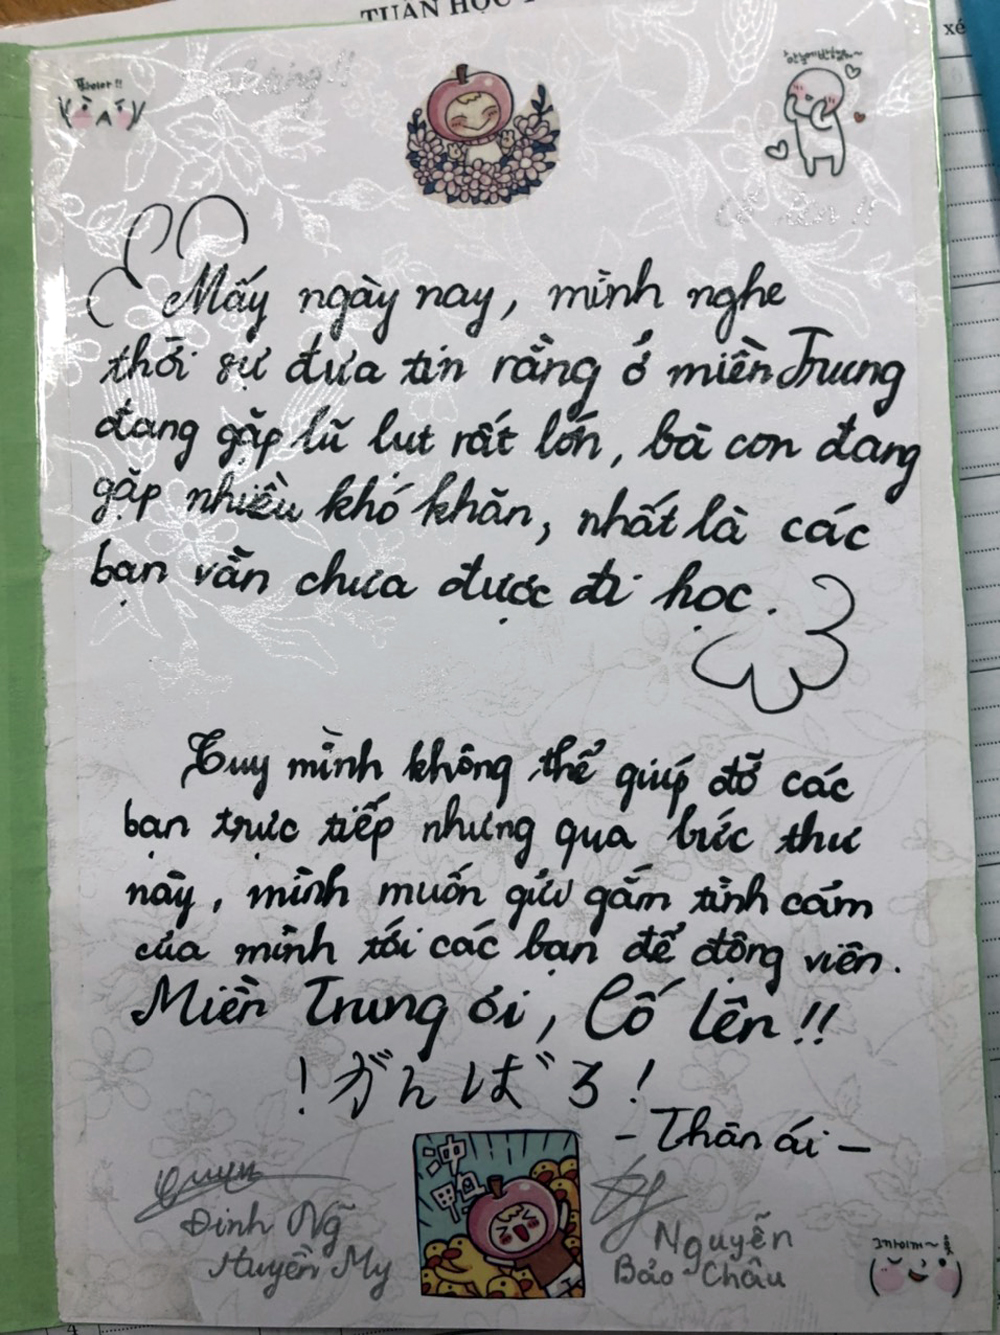 TUẦN HỌC
xé
Cố lên !!
Mấy ngày nay, mình nghe
thời sự đưa tin rằng ở miền Trung
đang gặp lũ lut rất lớn, bà con đang
gặp nhiều khó khăn, nhất là các
bạn vẫn chưa được đi học.
Tuy mình không thể giúp đỡ các
bạn trực tiếp nhưng qua bức thư
này, mình muốn gửi gắm tình cảm
của mình tới các bạn để động viên.
Miền Trung ơi, Cố lên !!
! がんばろ !
- Thân ái -
冲鸭
Đinh Ng̃
Huyền My
Nguyễn
Bảo Châu
4